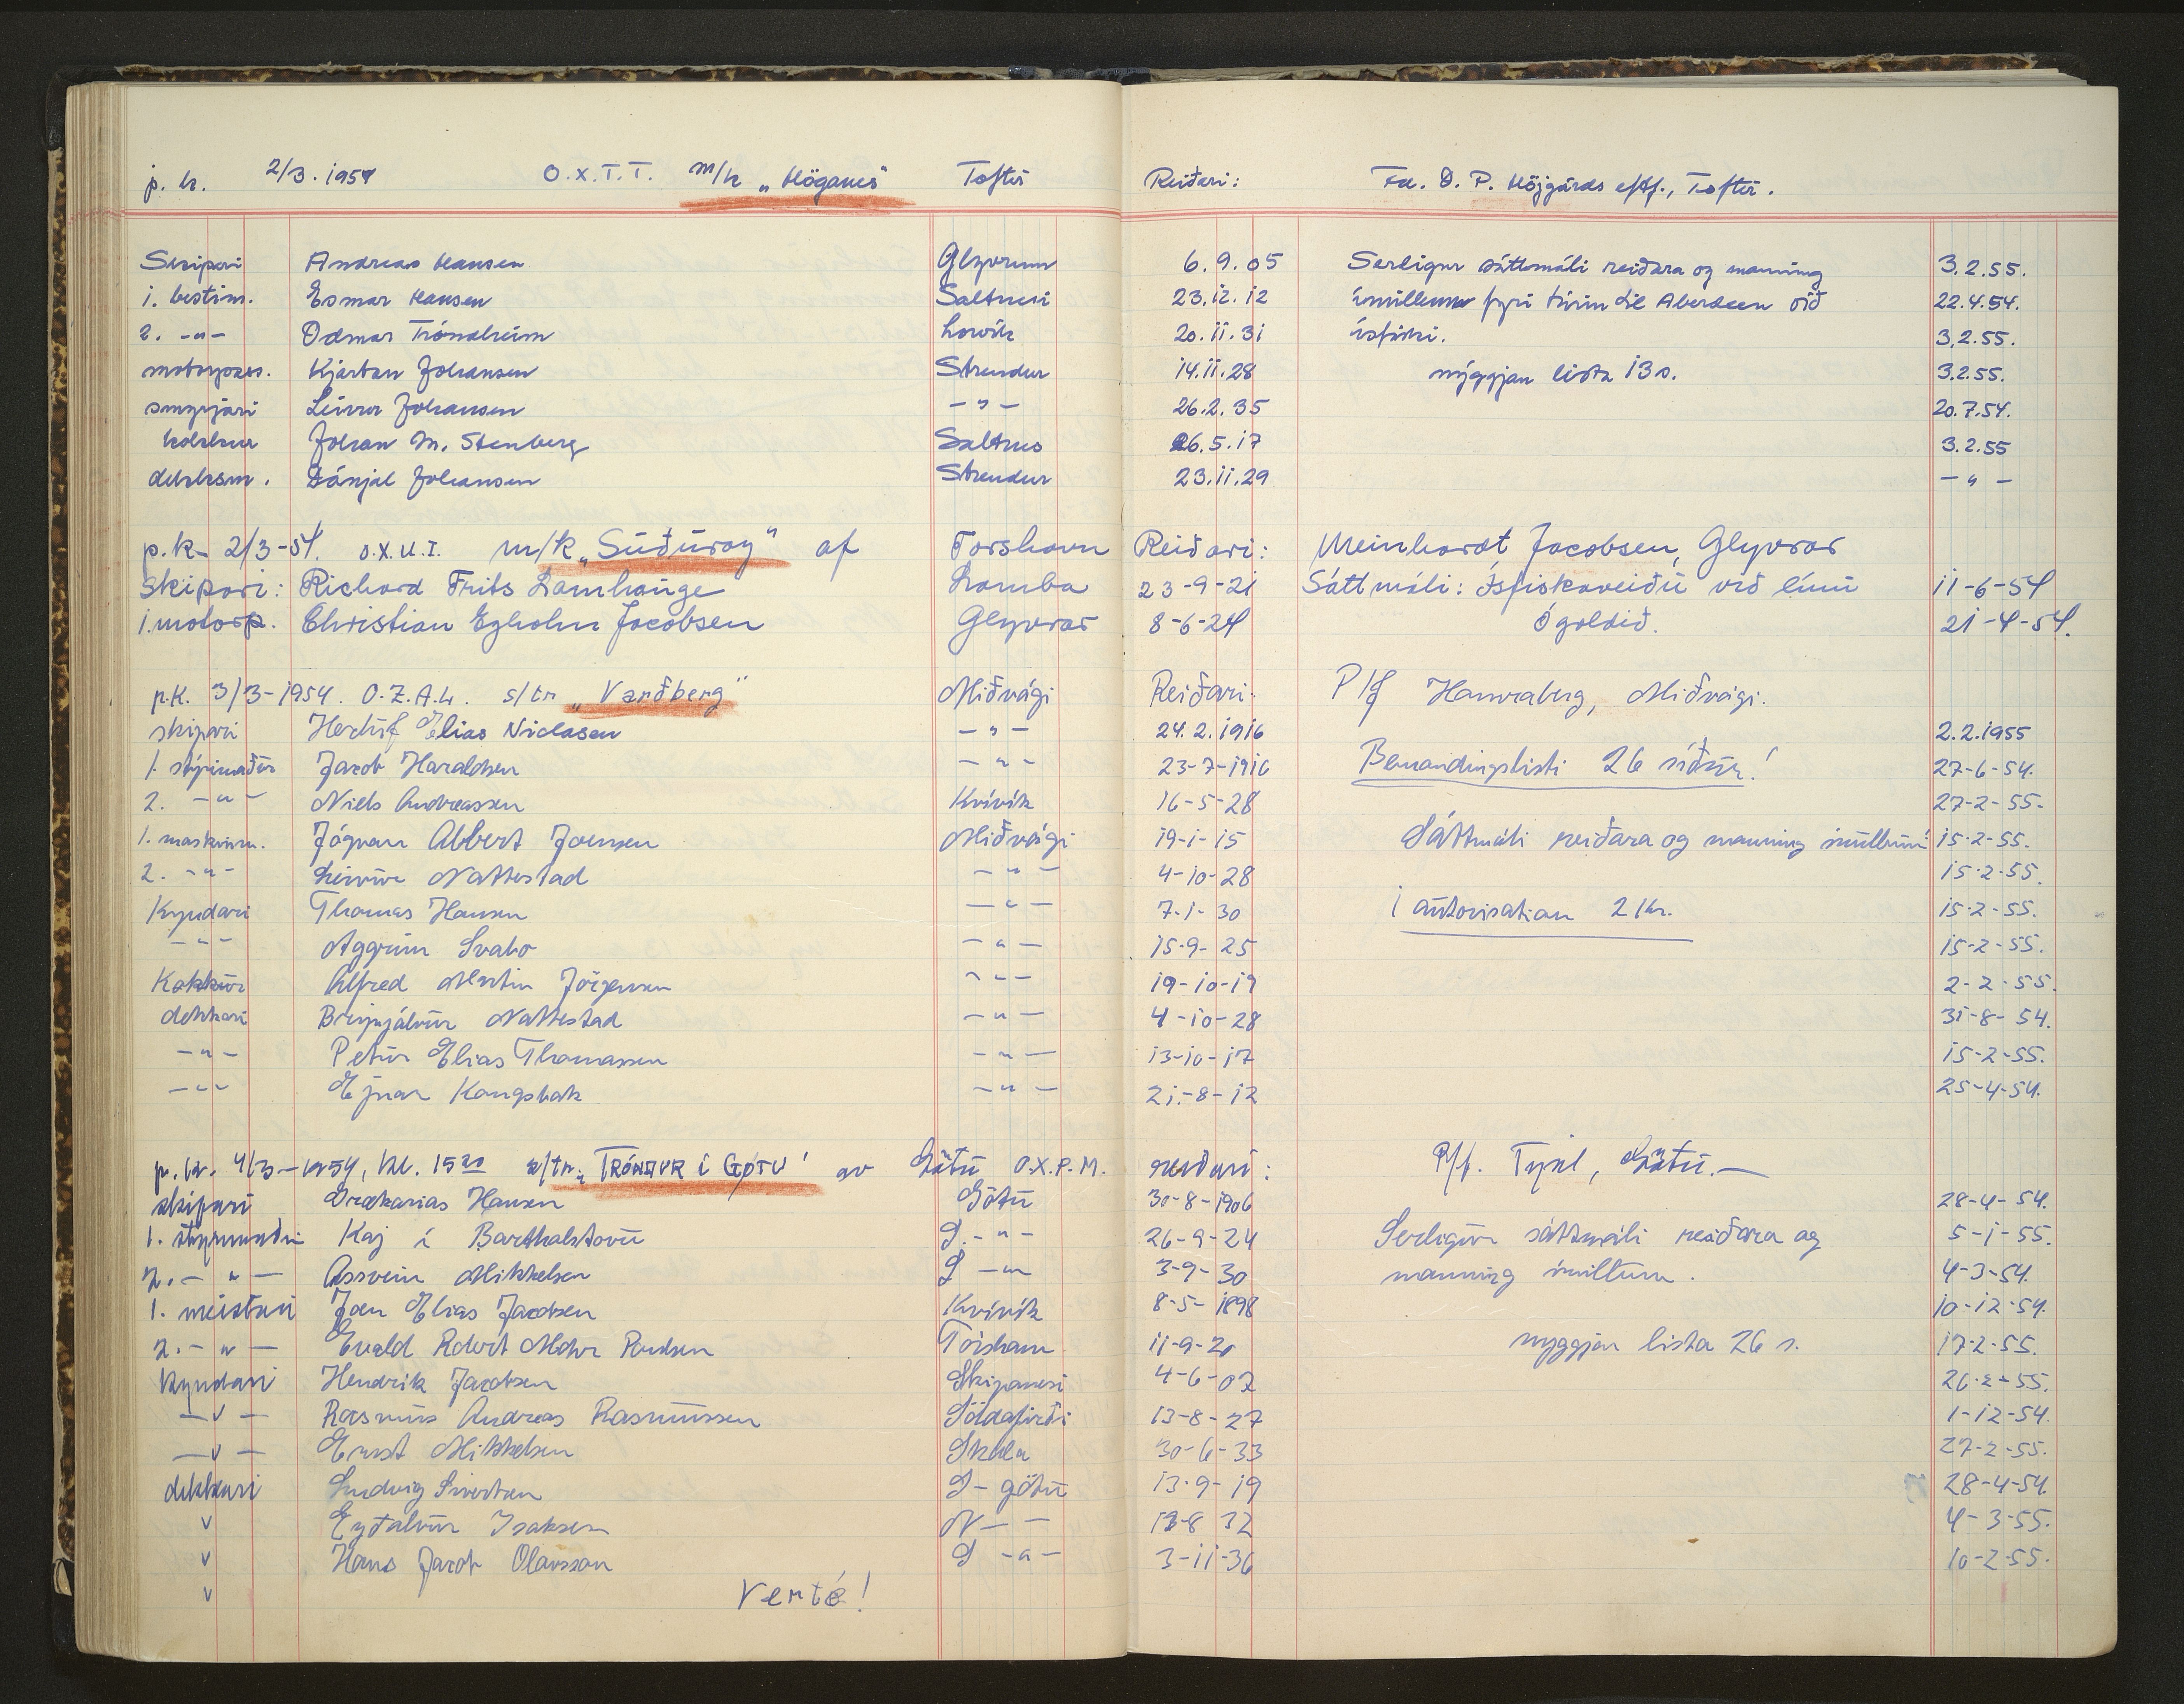 p.k. 2/3.1954 O.X.T.T. m/k „Höganes" Toftir Reiðari: Fa. D. P. Höjgårds eftf., Toftir.
Skipari Andreas Hansen Glyvrum 6.9.05 Serligur sáttmáli reiðara og manning 3.2.55.
1. bestm. Esmar Hansen Saltnesi 23.12.12 ímillum fyri túrin til Aberdeen við 22.4.54.
2. -"- Odmar Tróndheim Lorvík 20.11.31 ísfiski. 3.2.55.
motorpass. Kjartan Johansen Strendur 14.11.28 nýggjan lista 13 s. 3.2.55.
smyrjari Leivur Johansen -"- 26.2.35 20.7.54.
kokkur Johan M. Stenberg Saltnes 26.5.17 3.2.55
dekksm. Dánjal Johansen Strendur 23.11.29 -"-
p.k- 2/3-54. O.X.U.I. m/k „Suðuroy" af Torshavn Reiðari: Meinhardt Jacobsen, Glyvrar
Skipari: Richard Frits Lamhauge Lamba 23-9-21 Sáttmáli: Ísfiskaveiðu við línu 11-6-54
1.motorp. Christian Egholm Jacobsen Glyvrar 8-6-24 Ógoldið. 21-4-54.
p.k. 3/3-1954. O.Z.A.L. s/tr „Varðberg" Miðvági Reiðari: P/f Hamraberg, Miðvági.
skipari Herluf Elias Niclasen -"- 24.2.1916 2.2.1955
1. stýrimaður Jacob Haraldsen -"- 23-7-1916 Bemandingslisti 26 síður! 27-6-54.
2. -"- Niels Andreassen Kvívík 16-5-28 27-2-55.
1. maskinm. Jógvan Albert Joensen Miðvági 19-1-15 Sáttmáli reiðara og manning ímillum 15-2-55.
2. -"- Leivur Nattestad -"- 4-10-28 15-2-55.
Kyndari Thomas Hansen -"- 7-1-30 1 autorisation 2 Kr. 15-2-55.
-"- Aggrim Svabo -"- 15-9-25 15-2-55.
Kokkur Alfred Martin Jörgensen -"- 19-10-19 2-2-55.
dekkari Brynjálvur Nattestad -"- 4-10-28 31-8-54.
-"- Petur Elias Thomassen -"- 13-10-17 15-2-55.
-"- Ejnar Kongsbak -"- 21-8-12 25-4-54.
p.k. 4/3-1954, kl. 15²⁰ s/tr. „TRÓNDUR Í GØTU" av Götu O.X.P.M. reiðari: P/f. Tyril, Götu.
skipari Zakarias Hansen Götu 30-8-1906 28-4-54.
1. stýrimaður Kaj í Barthalstovu S. -"- 26-9-24 Serligur sáttmáli reiðara og 5-1-55.
2. -"- Assvein Mikkelsen S -"- 3-9-30 manning ímillum. 4-3-54.
1. meistari Joen Elias Jacobsen Kvívík 8-5-1898 10-12-54.
2. -"- Evald Robert Mohr Poulsen Tórshavn 11-9-20 nýggjan lista 26 s. 17-2-55.
kyndari Hendrik Jacobsen Skipanesi 4-6-07 26-2-55.
-v- Rasmus Andreas Rasmussen Söldafirði 13-8-27 1-12-54.
-v- Ernst Mikkelsen Skála 30-6-33 27-2-55.
dekkari Ludvig Sivertsen S-götu 13-9-19 28-4-54.
v Eyðalvur Isaksen N-- 12-8 32 4-3-55.
v Hans Jacob Olavsson S -"- 3-11-36 10-2-55.
v Verté!